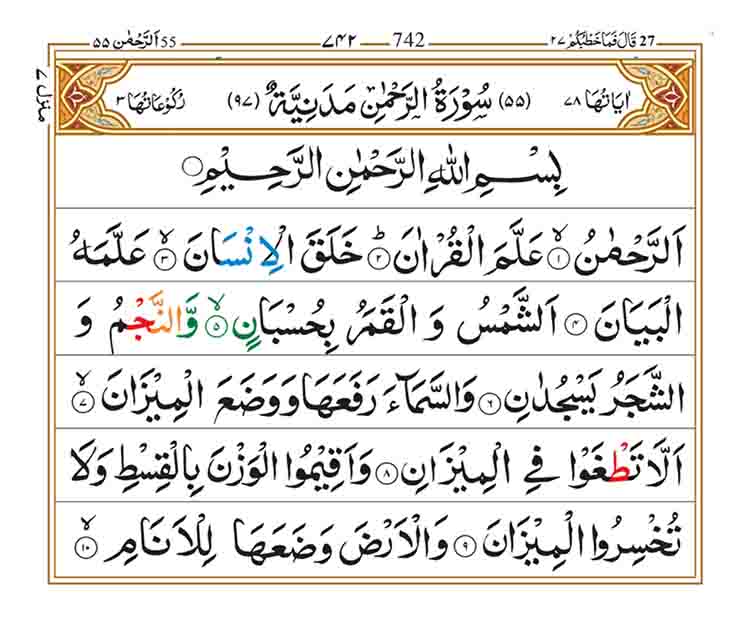 27 قَالَ فَمَا خَطْبُكُمْ ٢٧ 742 ٧٤٢ 55 اَلرَّحْمٰن ٥٥
منزل ٧
اٰیَاتُهَا ٧٨ (٥٥) سُوْرَةُ الرَّحْمٰنِ مَدَنِیَّةٌ (٩٧) رُكُوْعَاتُهَا ٣
بِسْمِ اللّٰهِ الرَّحْمٰنِ الرَّحِیْمِ۝
اَلرَّحْمٰنُ ۙ۝١ عَلَّمَ الْقُرْاٰنَ ؕ۝٢ خَلَقَ الْاِنْسَانَ ۙ۝٣ عَلَّمَهُ
الْبَیَانَ ۝٤ اَلشَّمْسُ وَ الْقَمَرُ بِحُسْبَانٍ ۙ۝٥ وَّالنَّجْمُ وَ
الشَّجَرُ یَسْجُدٰنِ ۝٦ وَالسَّمَآءَ رَفَعَهَا وَوَضَعَ الْمِیْزَانَ ۙ۝٧
اَلَّا تَطْغَوْا فِی الْمِیْزَانِ ۝٨ وَاَقِیْمُوا الْوَزْنَ بِالْقِسْطِ وَلَا
تُخْسِرُوا الْمِیْزَانَ ۝٩ وَالْاَرْضَ وَضَعَهَا لِلْاَنَامِ ۙ۝١٠